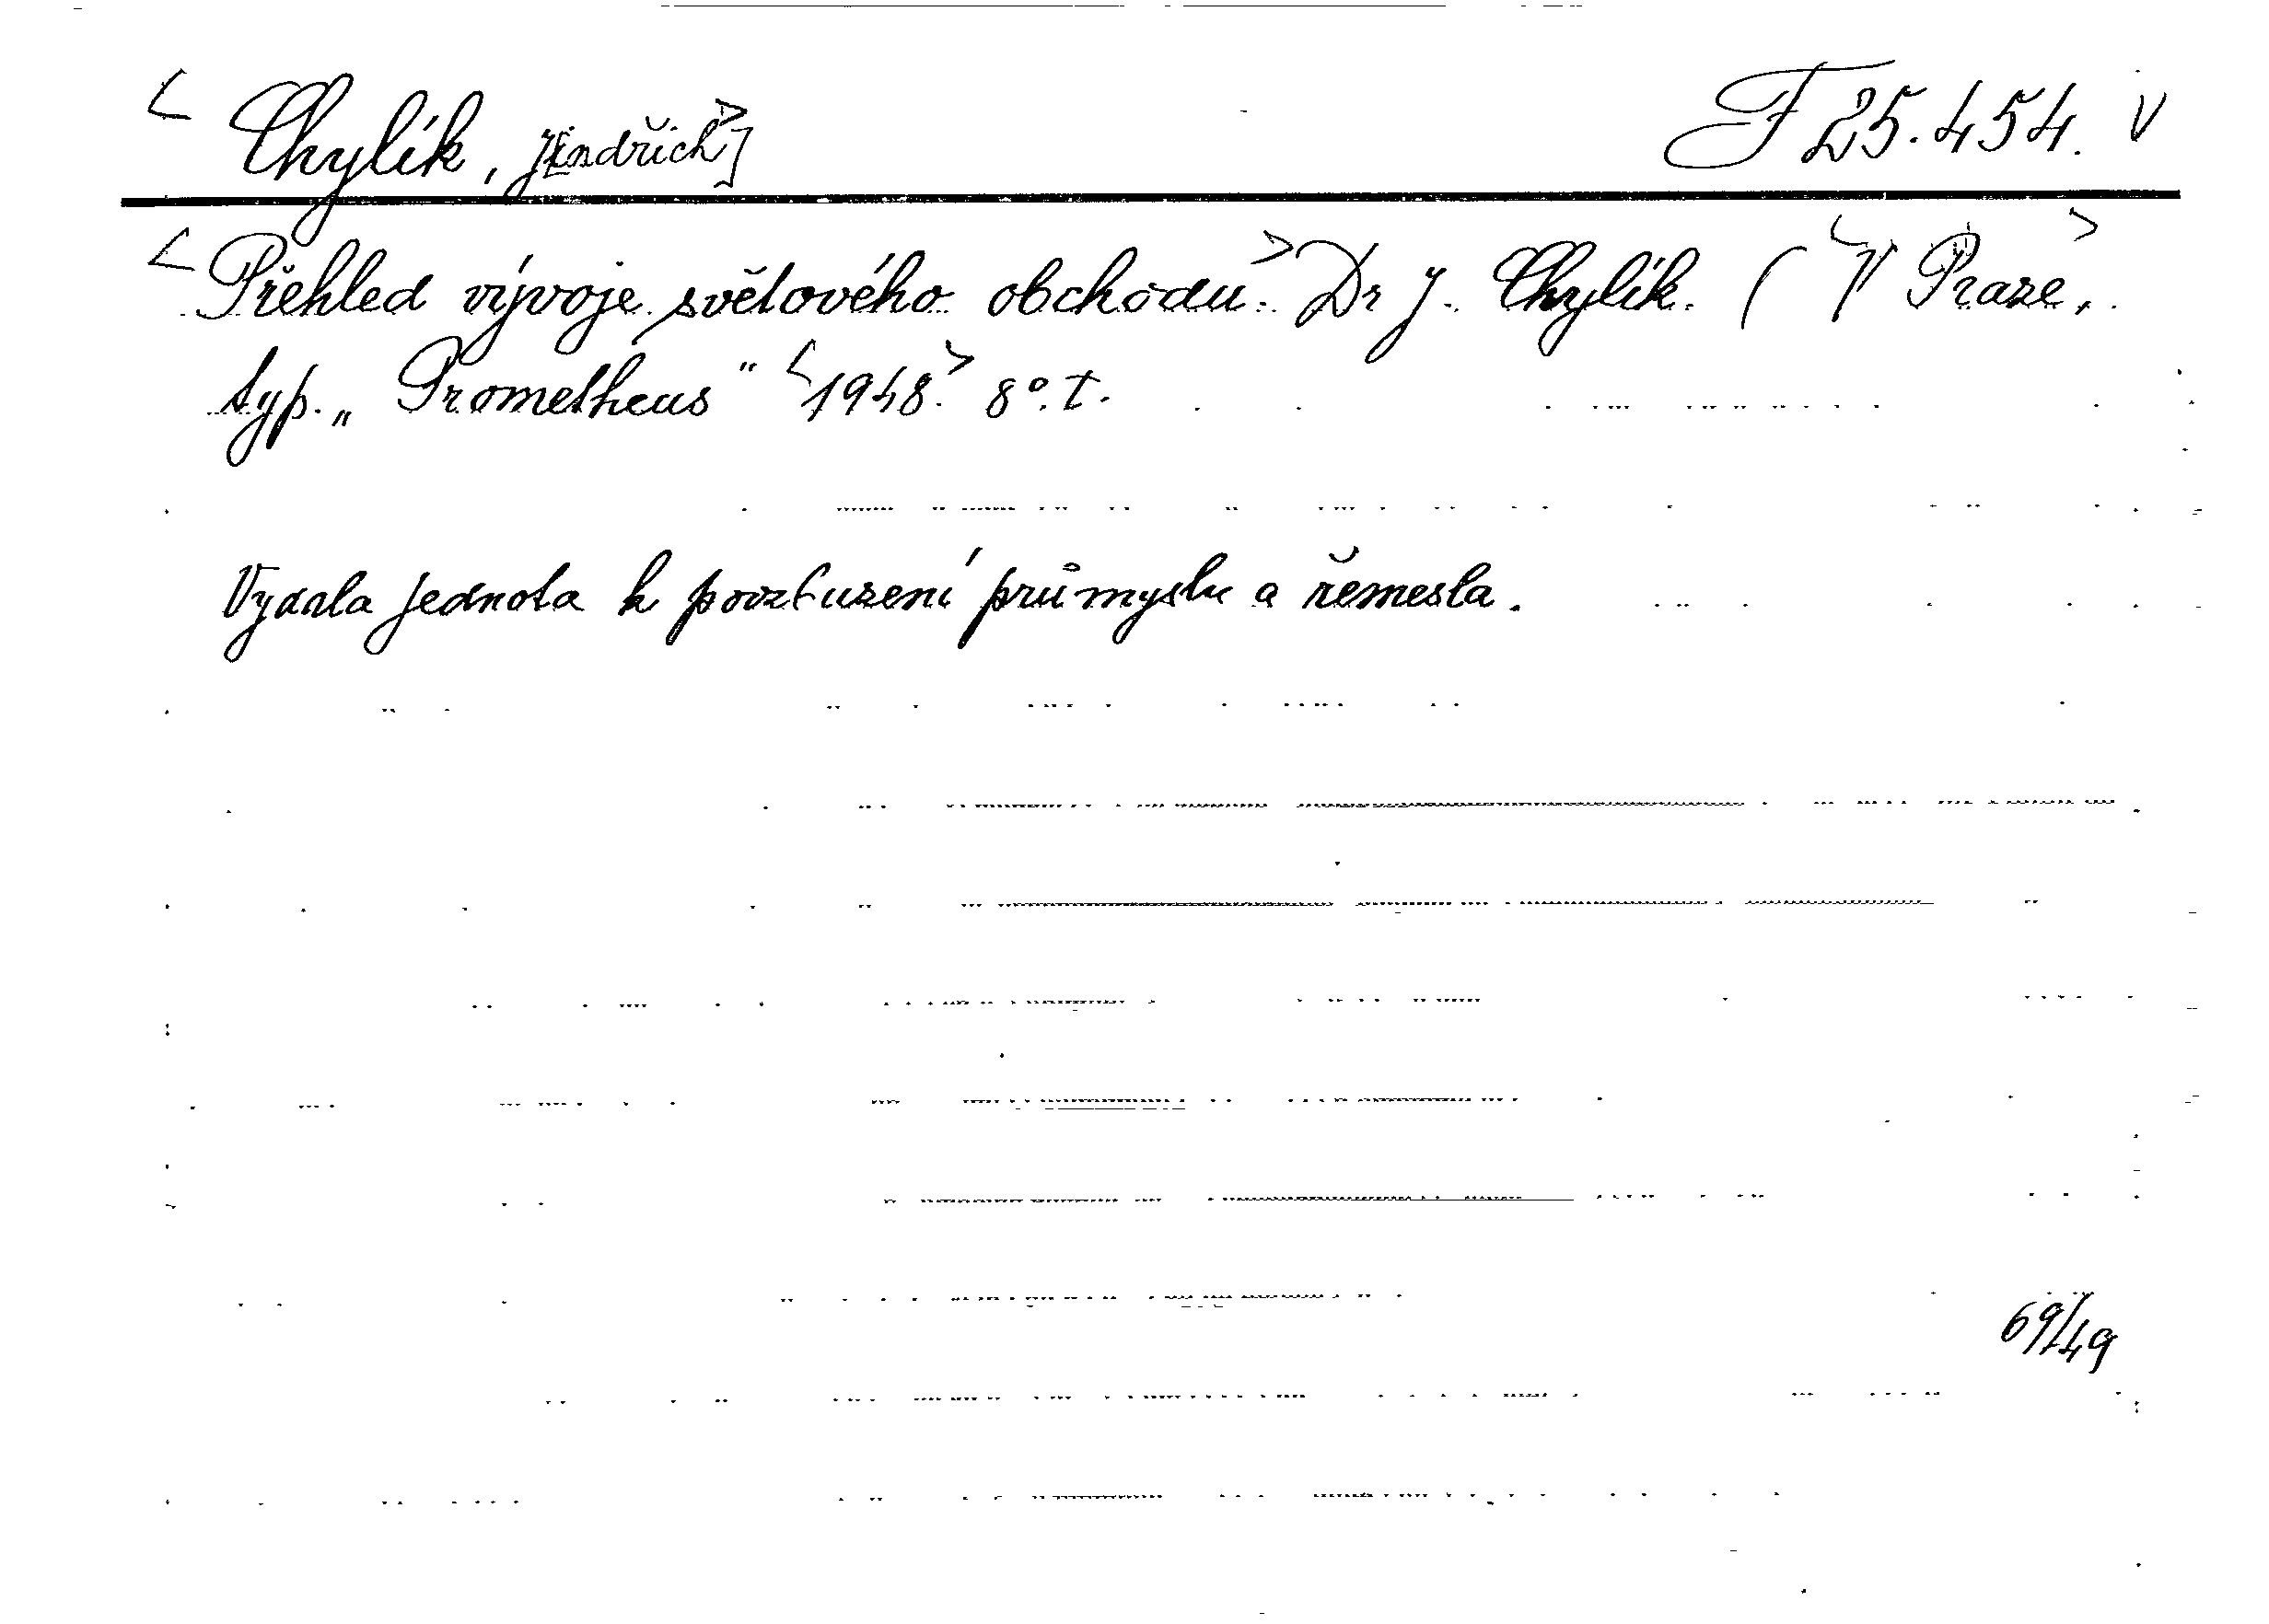 < Chylík, J[indřich>] F 25.454. V
< Přehled vývoje světového obchodu.> Dr J. Chylík. ( <V Praze,>
typ. „Prometheus" <1948.> 8°. t.
Vydala jednota k povzbuzení průmyslu a řemesla.
69/49